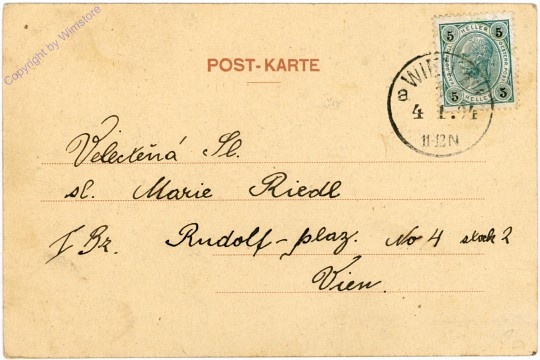 Copyright by Wimstore
POST-KARTE
5 HELLER 5
5 HELLER 5
WIEN
4 1. 04
11-12N
Velectěná Sl.
sl. Marie Riedl
I Bz. Rudolf-plaz. No 4 stock 2
Vien.